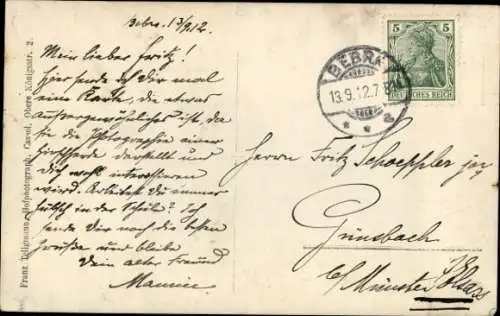 Bebra. 13/9.12.
Mein lieber Fritz!
Hier sende ich Dir mal
eine Karte, die etwas
Aussergewöhnliches ist, da
sie die Photographie einer
darstellt und
dich wohl interessieren
wird. Arbeitest Du immer
hübsch in der Schule? Ich
sende Dir noch die besten
Grüsse und bleibe
Dein alter Freund
Maurice
Franz Tellgmann, Hofphotograph, Cassel, Obere Königsstr. 2.
BEBRA
13.9.12.7
5 5
DEUTSCHES REICH
Herrn Fritz Schoeppler jr
Günsbach
b/ Münster Elsass